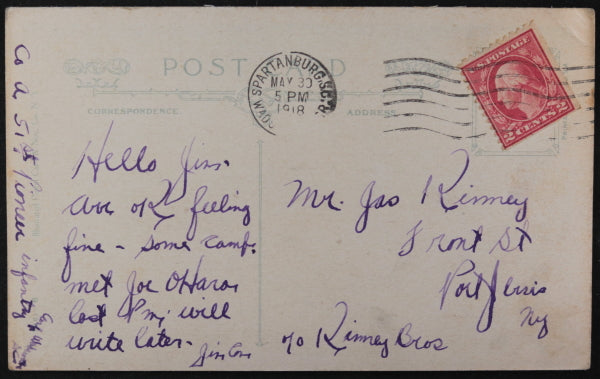 POST CARD
CORRESPONDENCE
ADDRESS
SPARTANBURG, S.C.
MAY 30
5 PM
1918
U.S. POSTAGE
2 CENTS 2
Co A 51st Pioneer infantry
Hello Jim-
Arr OK feeling
fine - some camp.
met Joe OHara
last Pm, will
write later-
Jim
Mr. Jas Kinney
Front St
Port Jervis
Ny
c/o Kinney Bros